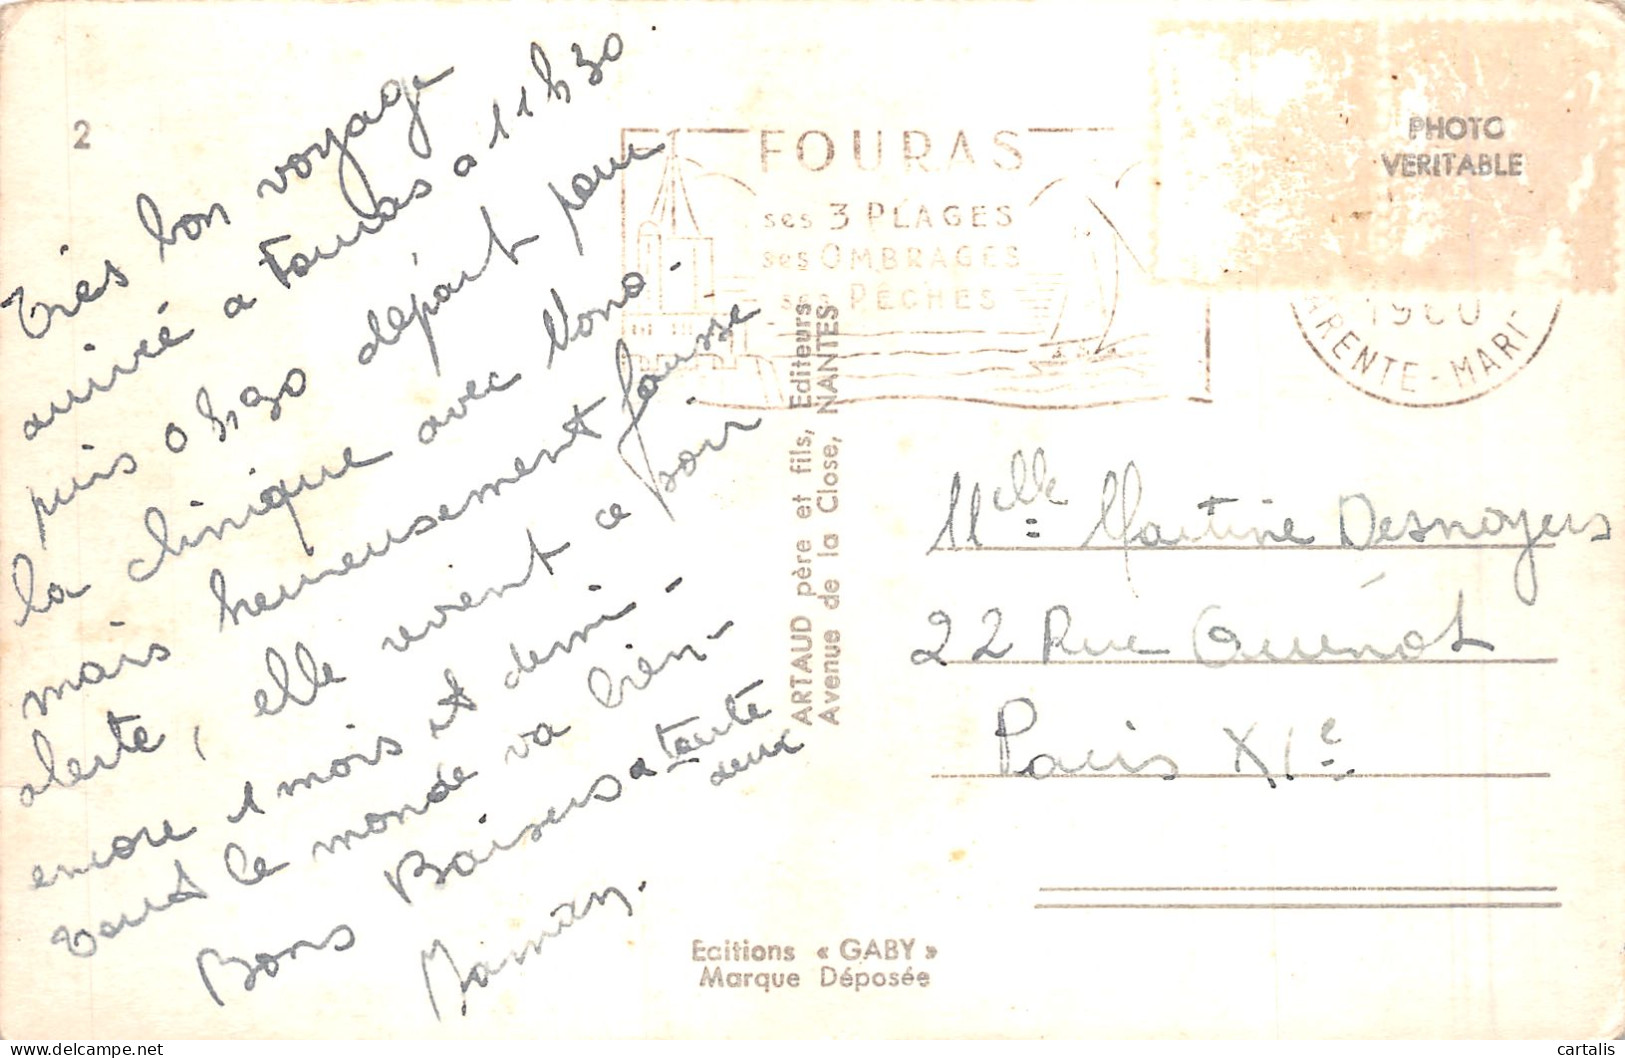 2
Très bon voyage
arrivé a Fouras a 11h30
puis 0h30 départ pour
la clinique avec Nono.
mais heureusement fausse
alerte, elle revient ce soir.
encore 1 mois et demi -
tout le monde va bien -
Bons Baisers a toute
deux
Maman.
FOURAS
ses 3 PLAGES
ses OMBRAGES
ses PÊCHES
1960
ARENTE-MARIT
PHOTO
VERITABLE
ARTAUD père et fils, Editeurs
Avenue de la Close, NANTES
Melle Martine Desnoyers
22 Rue Guénot
Paris XIe
Editions « GABY »
Marque Déposée
cartalis